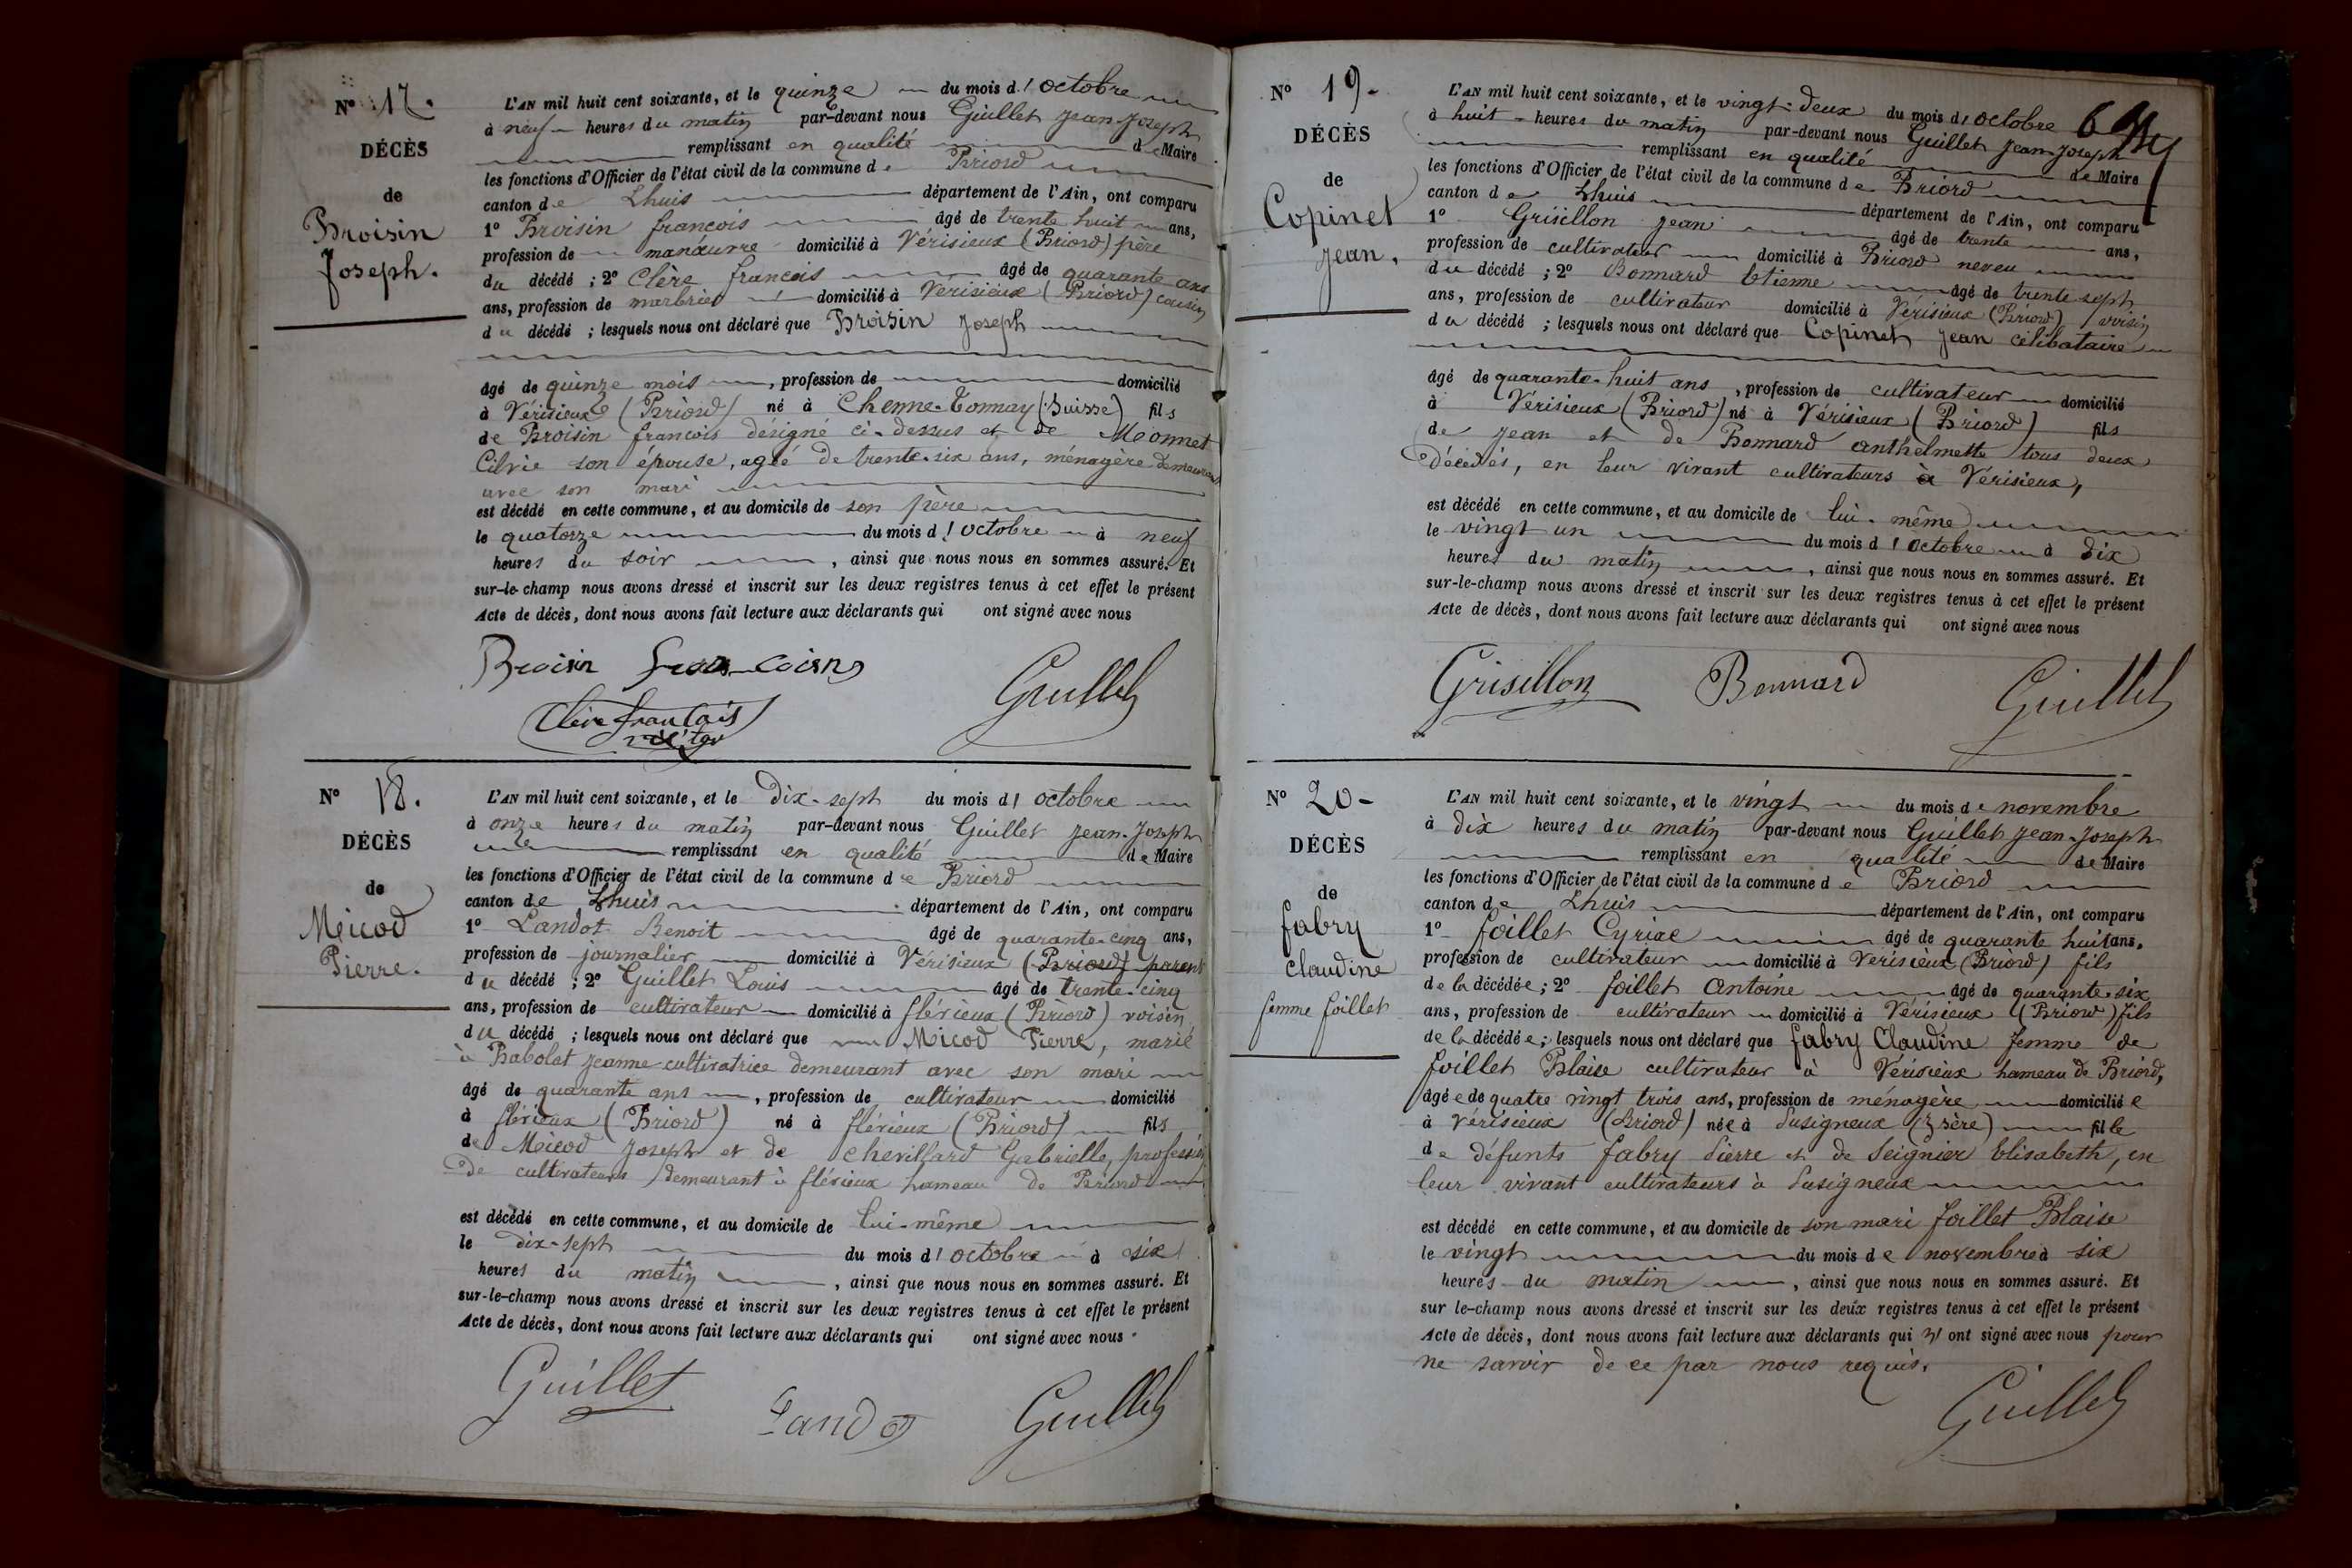 N° 17.
DÉCÈS
de
Broisin
Joseph.
L'AN mil huit cent soixante, et le quinze du mois d'octobre
à neuf heures du matin par-devant nous Guillet Jean-Joseph
remplissant en qualité de Maire
les fonctions d'Officier de l'état civil de la commune de Briord
canton de Lhuis département de l'Ain, ont comparu
1° Broisin francois âgé de trente huit ans,
profession de manœuvre domicilié à Vérisieux (Briord) père
du décédé ; 2° Clère francois âgé de quarante ans
ans, profession de marbrier domicilié à Vérisieux (Briord) cousin
du décédé ; lesquels nous ont déclaré que Broisin Joseph
âgé de quinze mois, profession de domicilié
à Vérisieux (Briord) né à Chenne-Tonnay (Suisse) fils
de Broisin francois désigné ci-dessus et de Meonnet
Cilvie son épouse, agée de trente-six ans, ménagère demeurant
avec son mari
est décédé en cette commune, et au domicile de son père
le quatorze du mois d'octobre à neuf
heures du soir, ainsi que nous nous en sommes assuré. Et
sur-le-champ nous avons dressé et inscrit sur les deux registres tenus à cet effet le présent
Acte de décès, dont nous avons fait lecture aux déclarants qui ont signé avec nous
Broisin
Guillet
Clère francais
N° 18.
DÉCÈS
de
Micod
Pierre.
L'AN mil huit cent soixante, et le Dix-sept du mois d'octobre
à onze heures du matin par-devant nous Guillet Jean-Joseph
remplissant en qualité de Maire
les fonctions d'Officier de l'état civil de la commune de Briord
canton de Lhuis département de l'Ain, ont comparu
1° Landot Benoit âgé de quarante-cinq ans,
profession de journalier domicilié à Vérisieux (Briord) parent
du décédé ; 2° Guillet Louis âgé de trente-cinq
ans, profession de cultivateur domicilié à flérieux (Briord) voisin
du décédé ; lesquels nous ont déclaré que Micod Pierre, marié
à Babolat Jeanne cultivatrice demeurant avec son mari
âgé de quarante ans, profession de cultivateur domicilié
à flérieux (Briord) né à flérieux (Briord) fils
de Micod Joseph et de Chevillard Gabrielle, profession
de cultivateurs demeurant à flérieux hameau de Briord
est décédé en cette commune, et au domicile de lui-même
le dix-sept du mois d'octobre à six
heures du matin, ainsi que nous nous en sommes assuré. Et
sur-le-champ nous avons dressé et inscrit sur les deux registres tenus à cet effet le présent
Acte de décès, dont nous avons fait lecture aux déclarants qui ont signé avec nous
Guillet Landot Guillet
N° 19.
DÉCÈS
de
Copinet
Jean.
L'AN mil huit cent soixante, et le vingt-deux du mois d'octobre
à huit heures du matin par-devant nous Guillet Jean-Joseph
remplissant en qualité de Maire
les fonctions d'Officier de l'état civil de la commune de Briord
canton de Lhuis département de l'Ain, ont comparu
1° Grisillon Jean âgé de trente ans,
profession de cultivateur domicilié à Briord neveu
du décédé ; 2° Bonnard Etienne âgé de trente sept
ans, profession de cultivateur domicilié à Vérisieux (Briord) voisin
du décédé ; lesquels nous ont déclaré que Copinet Jean célibataire
âgé de quarante-huit ans, profession de cultivateur domicilié
à Vérisieux (Briord) né à Vérisieux (Briord) fils
de Jean et de Bonnard anthelmette tous deux
Décédés, en leur vivant cultivateurs à Vérisieux,
est décédé en cette commune, et au domicile de lui-même
le vingt un du mois d'octobre à dix
heures du matin, ainsi que nous nous en sommes assuré. Et
sur-le-champ nous avons dressé et inscrit sur les deux registres tenus à cet effet le présent
Acte de décès, dont nous avons fait lecture aux déclarants qui ont signé avec nous
Grisillon Bonnard Guillet
N° 20
DÉCÈS
de
fabry
Claudine
femme foillet
L'AN mil huit cent soixante, et le vingt du mois de novembre
à dix heures du matin par-devant nous Guillet Jean-Joseph
remplissant en qualité de Maire
les fonctions d'Officier de l'état civil de la commune de Briord
canton de Lhuis département de l'Ain, ont comparu
1° foillet Cyriae âgé de quarante huit ans,
profession de cultivateur domicilié à Vérisieux (Briord) fils
de la décédée ; 2° foillet Antoine âgé de quarante-six
ans, profession de cultivateur domicilié à Vérisieux (Briord) fils
de la décédée ; lesquels nous ont déclaré que fabry Claudine femme de
foillet Blaise cultivateur à Vérisieux hameau de Briord,
âgée de quatre vingt trois ans, profession de ménagère domiciliée
à Vérisieux (Briord) née à Lusigneux (Isère) fille
de défunts fabry Pierre et de Seignier Elisabeth, en
leur vivant cultivateurs à Lusigneux
est décédé en cette commune, et au domicile de son mari foillet Blaise
le vingt du mois de novembre à six
heures du matin, ainsi que nous nous en sommes assuré. Et
sur le-champ nous avons dressé et inscrit sur les deux registres tenus à cet effet le présent
Acte de décès, dont nous avons fait lecture aux déclarants qui n'ont signé avec nous pour
ne savoir de ce par nous requis.
Guillet